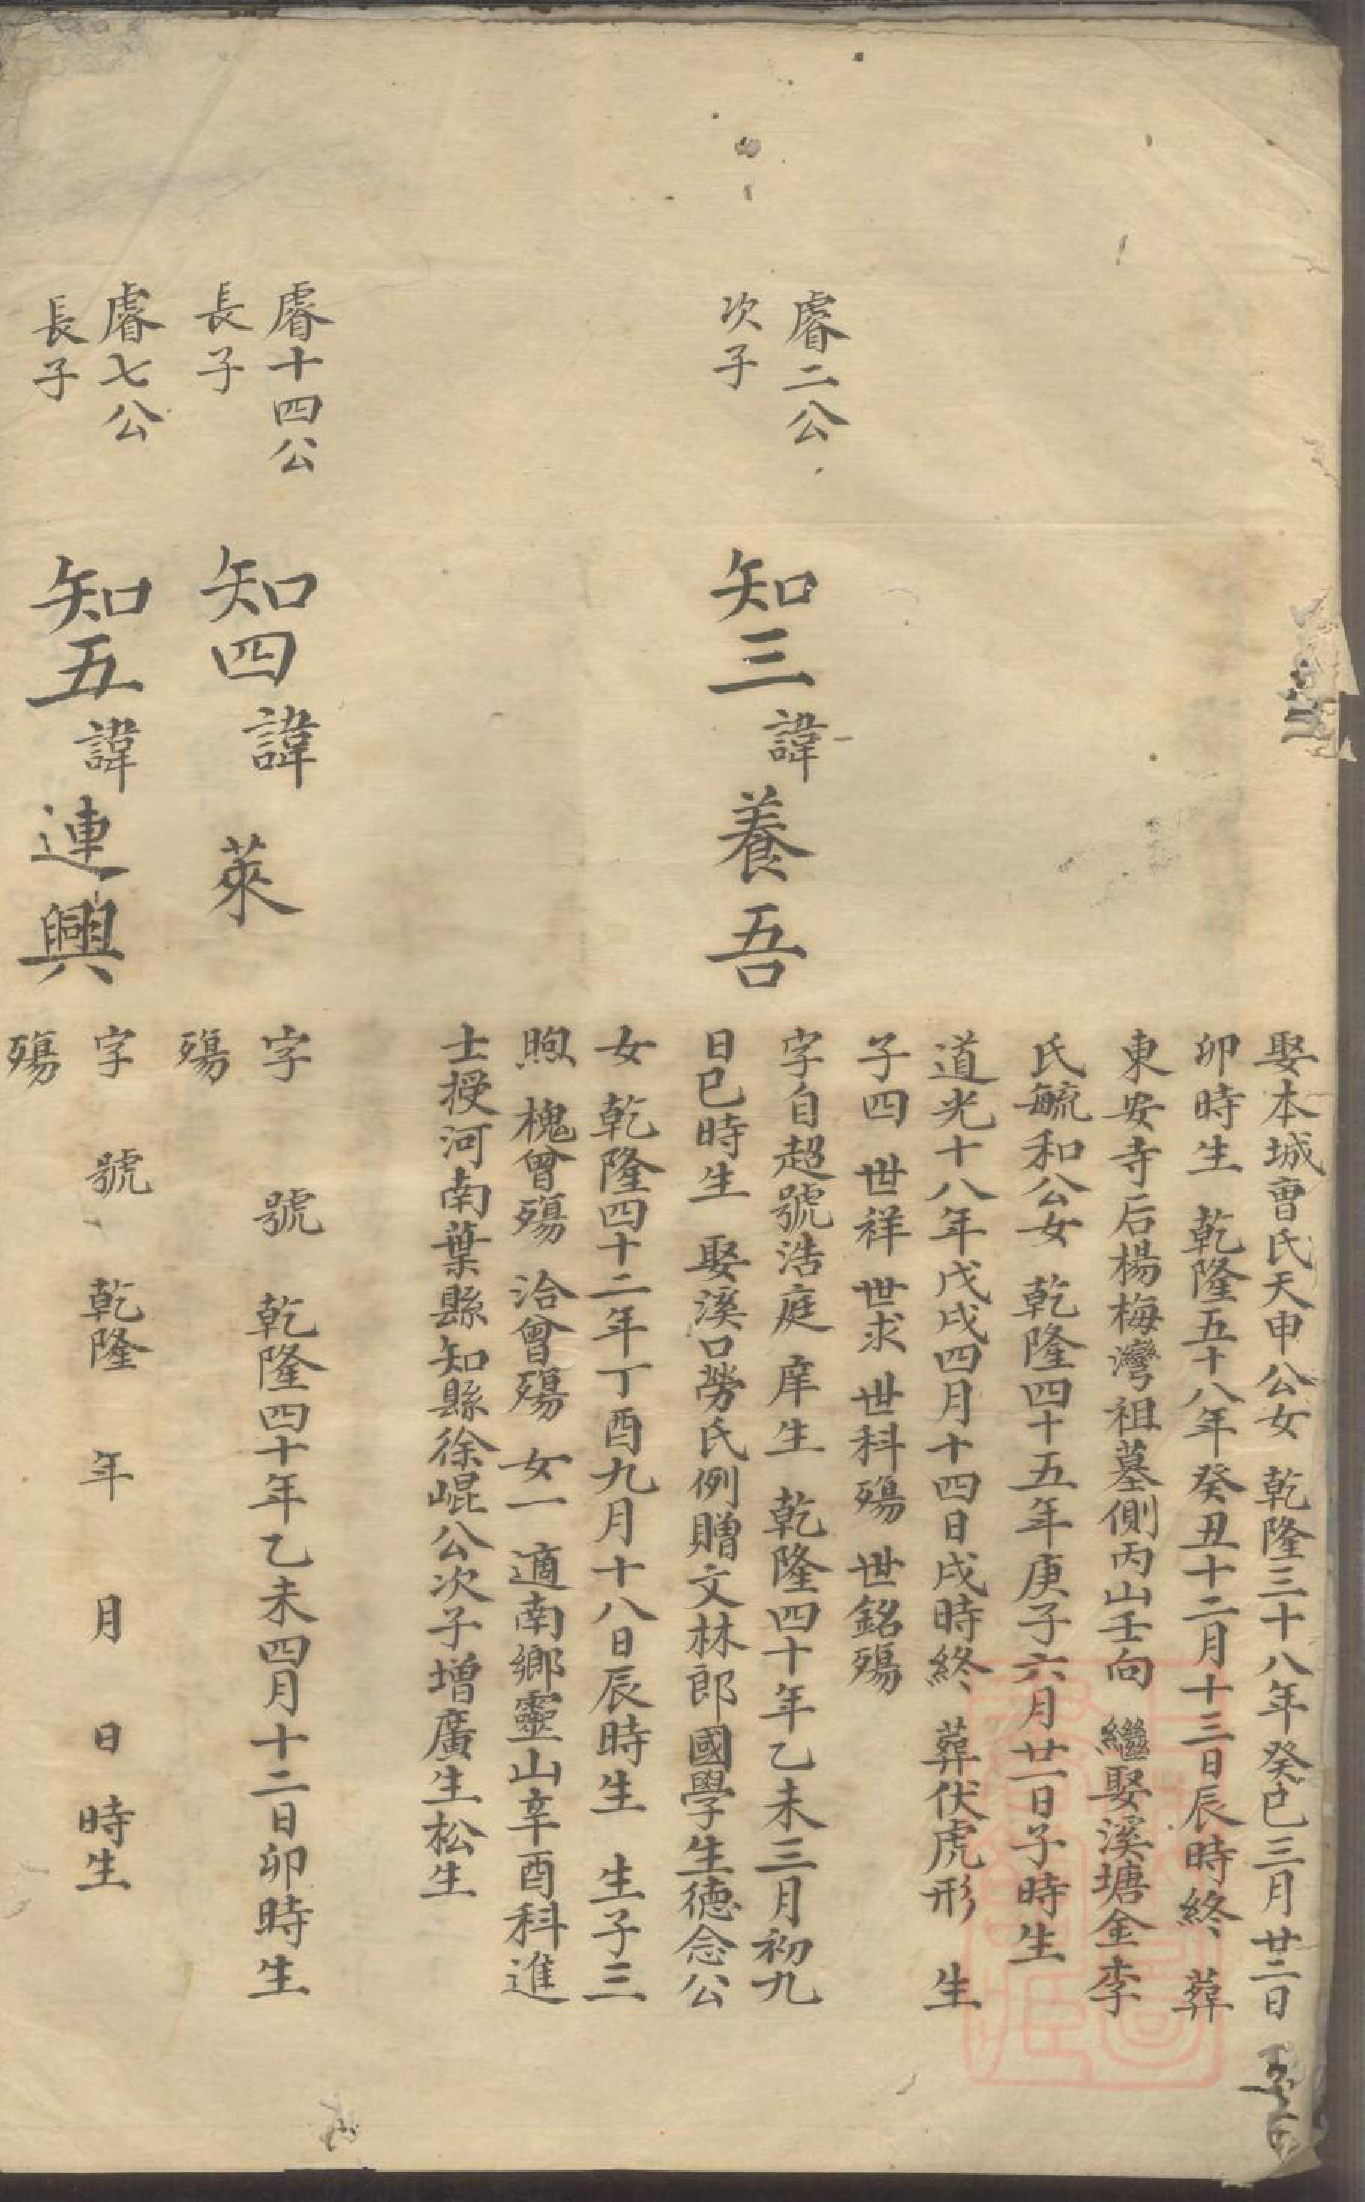 娶本城曹氏天申公女 乾隆三十八年癸巳三月廿二日
卯時生 乾隆五十八年癸丑十二月十三日辰時終 葬
東安寺后楊梅灣祖墓側丙山壬向 繼娶溪塘金李
氏毓和公女 乾隆四十五年庚子六月廿一日子時生
道光十八年戊戌四月十四日戌時終 葬伏虎形 生
子四 世祥 世求 世科殤 世銘殤
睿二公
次子
知三 諱 養吾
字自超號浩庭 庠生 乾隆四十年乙未三月初九
日巳時生 娶溪口勞氏例贈文林郎國學生德念公
女 乾隆四十二年丁酉九月十八日辰時生 生子三
煦 槐曾殤 洽曾殤 女一 適南鄉靈山辛酉科進
士授河南葉縣知縣徐崐公次子增廣生松生
睿十四公
長子
知四 諱 萊
字 號 乾隆四十年乙未四月十二日卯時生
殤
睿七公
長子
知五 諱 連興
字 號 乾隆 年 月 日 時生
殤